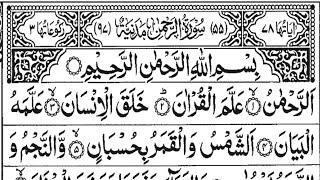 اٰیَاتُهَا ٧٨ (٥٥) سُوْرَةُ الرَّحْمٰنِ مَدَنِیَّةٌ (٩٧) رُکُوْعَاتُهَا ٣
بِسْمِ اللّٰهِ الرَّحْمٰنِ الرَّحِیْمِ
اَلرَّحْمٰنُ ۙ۝١ عَلَّمَ الْقُرْاٰنَ ؕ۝٢ خَلَقَ الْاِنْسَانَ ۙ۝٣ عَلَّمَهُ
الْبَیَانَ ۝٤ اَلشَّمْسُ وَالْقَمَرُ بِحُسْبَانٍ ۪۝٥ وَّالنَّجْمُ وَ